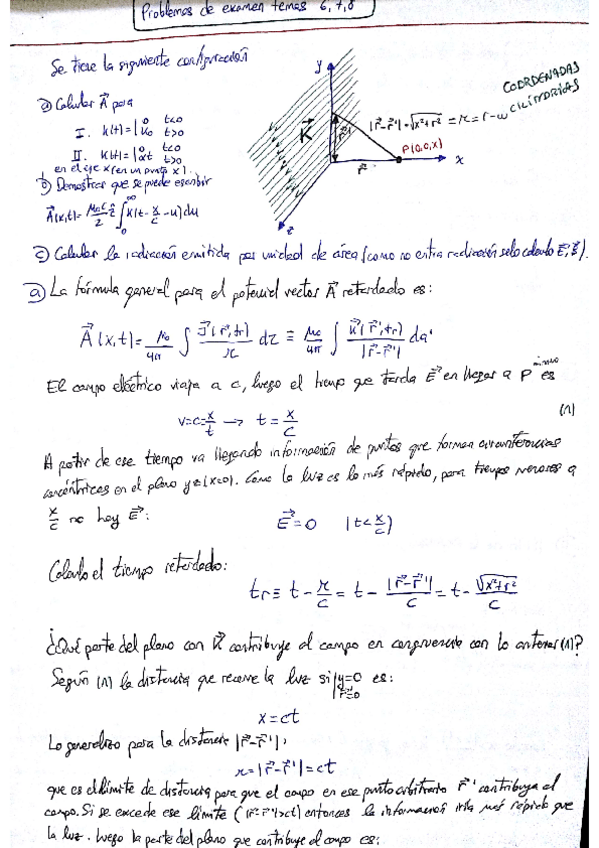 Problemas de examen temas 6,7,8
Se tiene la siguiente configuración
a) Calcular A⃗ para
I. K(t)=| 0 t<0
K₀ t>0
II. K(t)=| 0 t<0
αt t>0
en el eje x (en un punto x).
b) Demostrar que se puede escribir
A⃗(x,t)= μ₀c/2 ẑ ∫₀^∞ K(t-x/c-u)du
y
K⃗
|r⃗-r⃗'|=√(x²+r²) = r = r-ω
COORDENADAS
CILINDRICAS
P(0,0,x)
r⃗'
r⃗
x
z
c) Calcular la radiación emitida por unidad de área (como no entra radiación solo calculo E⃗,B⃗).
a) La fórmula general para el potencial vector A⃗ retardado es:
A⃗(x,t)= μ₀/4π ∫ J⃗(r⃗',tr)/r dz ≡ μ₀/4π ∫ K⃗(r⃗',tr)/|r⃗-r⃗'| da'
El campo eléctrico viaja a c, luego el tiempo mínimo que tarda E⃗ en llegar a P es
v=c=x/t → t = x/c (1)
A partir de ese tiempo va llegando información de puntos que forman circunferencias
concéntricas en el plano yz (x=0). Como la luz es lo más rápido, para tiempos menores a
x/c no hay E⃗:
E⃗=0 (t<x/c)
Calculo el tiempo retardado:
tr≡ t - r/c = t - |r⃗-r⃗'|/c = t - √(x²+r²)/c
¿Qué parte del plano con K⃗ contribuye al campo en congruencia con lo anterior (1)?
Según (1) la distancia que recorre la luz si | y=0
r⃗=0 es:
x=ct
Lo generalizo para la distancia |r⃗-r⃗'|,
r=|r⃗-r⃗'|=ct
que es el límite de distancia para que el campo en ese punto arbitrario r⃗' contribuya al
campo. Si se excede ese límite (|r⃗-r⃗'|>ct) entonces la información iría más rápido que
la luz. Luego la parte del plano que contribuye al campo es: